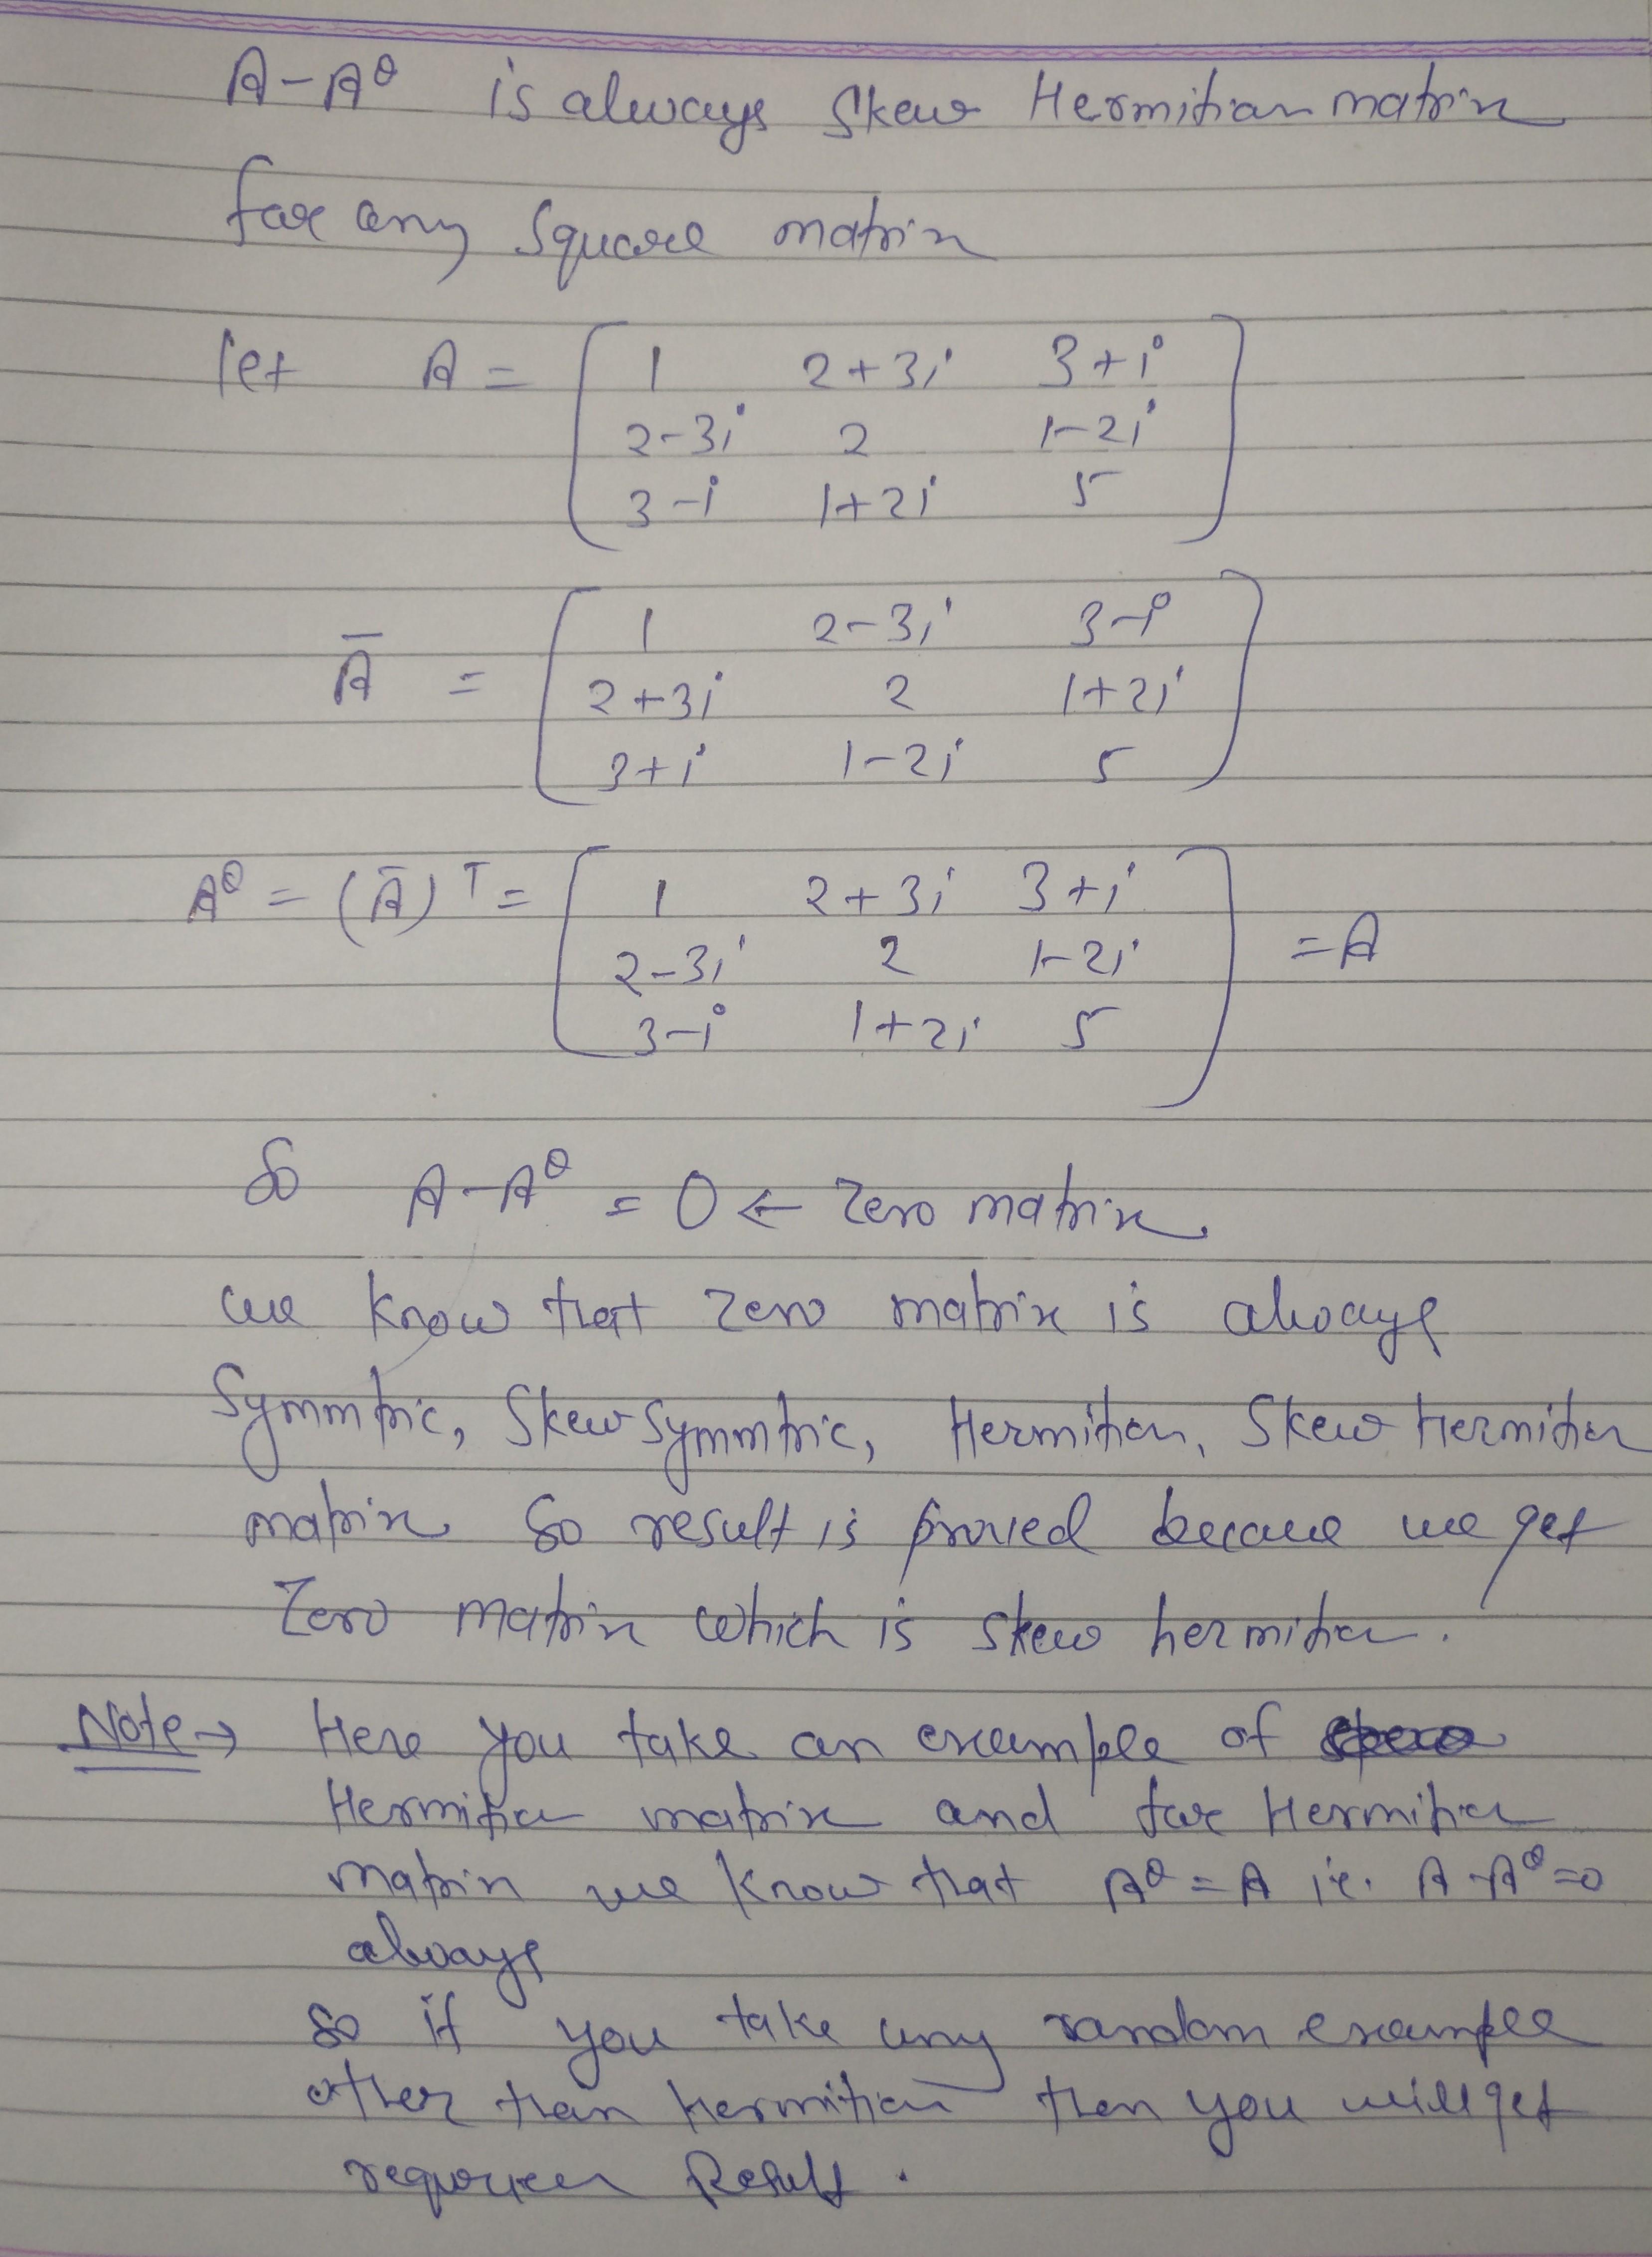 A-A^θ is always Skew Hermitian matrix
for any Square matrix
let A = [ 1 2+3i 3+i
2-3i 2 1-2i
3-i 1+2i 5 ]
Ā = [ 1 2-3i 3-i
2+3i 2 1+2i
3+i 1-2i 5 ]
A^θ = (Ā)^T = [ 1 2+3i 3+i
2-3i 2 1-2i = A
3-i 1+2i 5 ]
So A-A^θ = 0 ← Zero matrix
we know that Zero matrix is always
Symmtric, Skew Symmtric, Hermitian, Skew Hermitian
matrix So result is proved because we get
Zero matrix which is skew hermitian.
Note → Here you take an example of
Hermitian matrix and for Hermitian
matrix we know that A^θ = A i.e. A-A^θ=0
always
So if you take any random example
other than hermitian then you will get
Result.